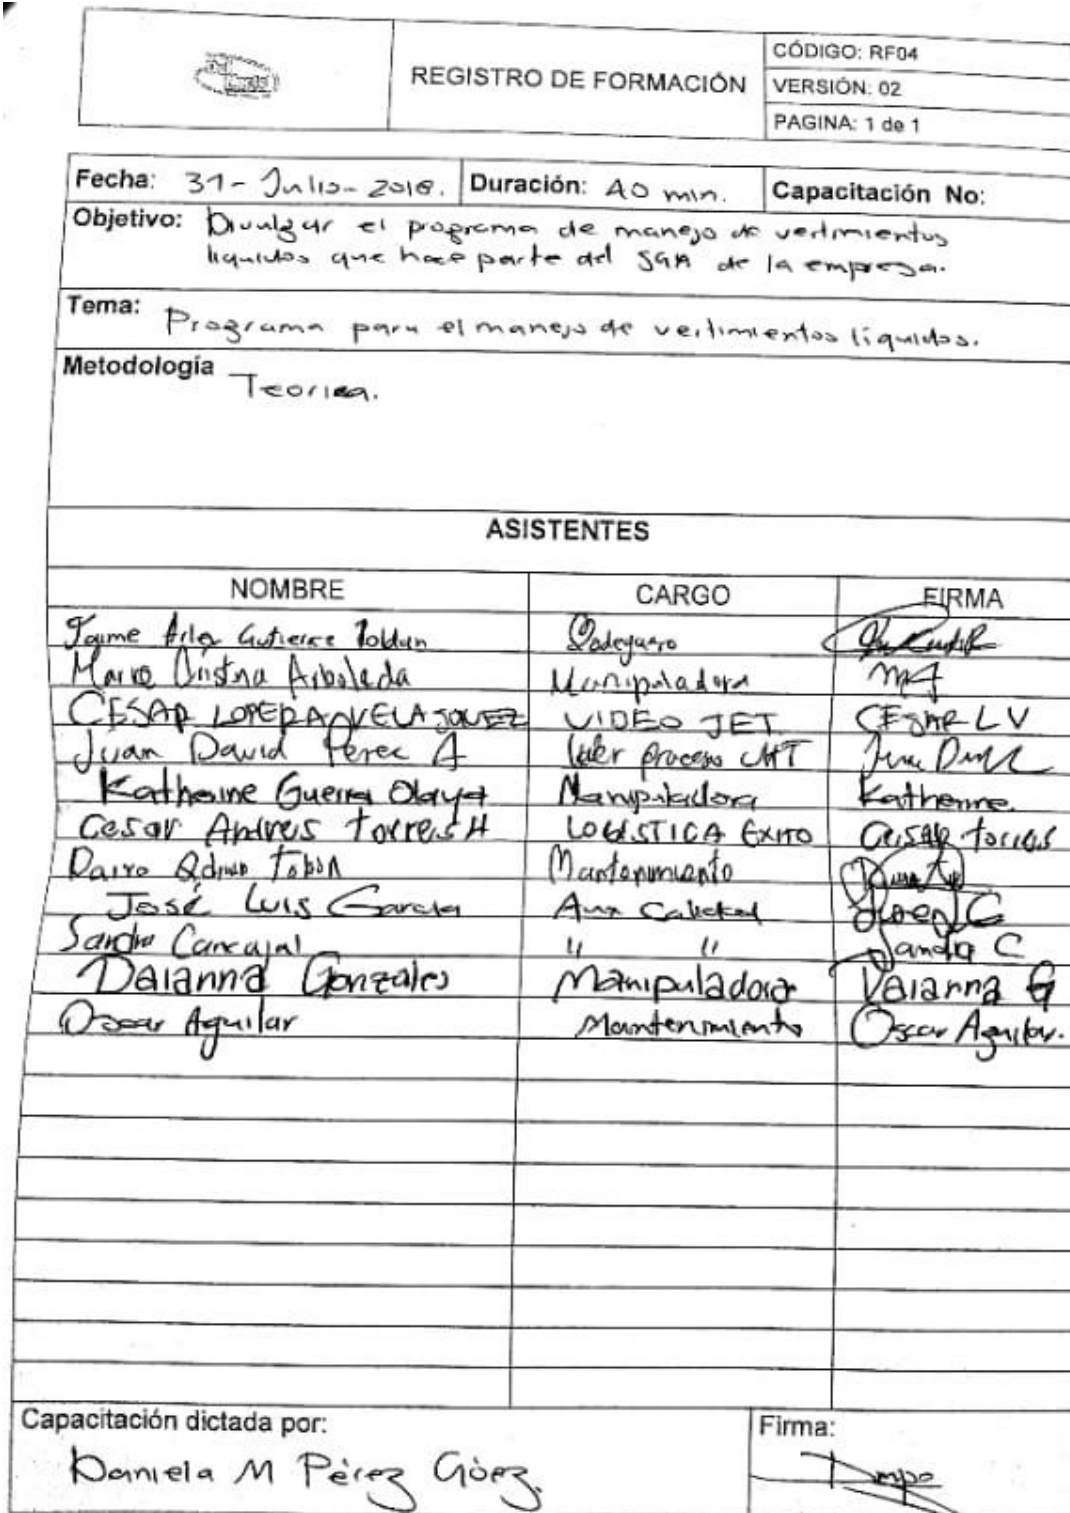 REGISTRO DE FORMACIÓN
CÓDIGO: RF04
VERSIÓN: 02
PAGINA: 1 de 1
Fecha: 31-Julio-2018. Duración: 40 min. Capacitación No:
Objetivo: Divulgar el programa de manejo de vertimientos
liquidos que hace parte del SGA de la empresa.
Tema: Programa para el manejo de vertimientos líquidos.
Metodología Teorica.
ASISTENTES
NOMBRE CARGO FIRMA
Jaime Gutierre Bodeguero
Maria Cristina Arboleda Manipuladora MA
CESAR LOPERA VELASQUEZ VIDEO JET CESAR LV
Juan David Perez A lider proceso Juan
Katherine Guerra Olaya Manipuladora Katherine
Cesar Andres Torres H LOGISTICA EXITO CESAR Torres
Dairo Tobon Mantenimiento
José Luis Garcia Aux Calidad
Sandra Carvajal " " Sandra C
Daianna Gonzales Manipuladora Daianna G
Oscar Aguilar Mantenimiento Oscar Aguilar.
Capacitación dictada por: Firma:
Daniela M Pérez Góez. Dmpg